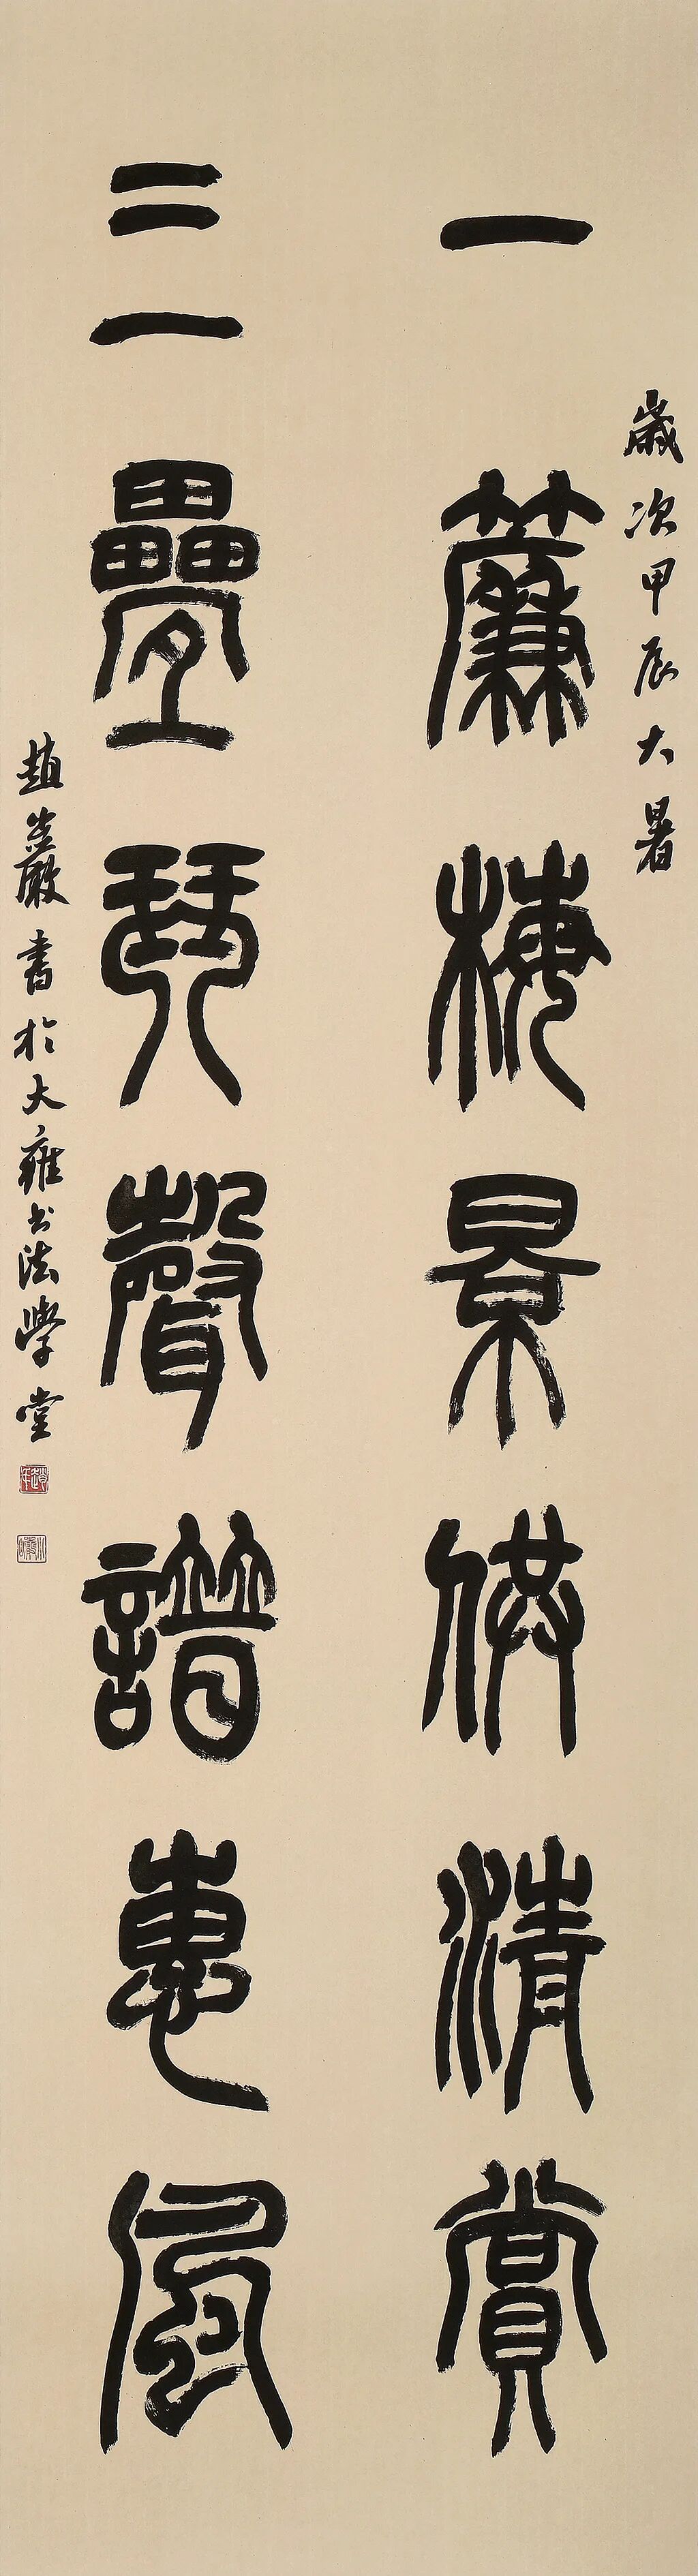 歲次甲辰大暑
一簾梅景供清賞
三疊琴聲譜惠風
趙岩嚴書於大雅书法學堂